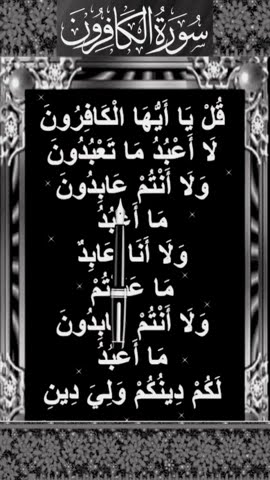 سُورَةُ الْكَافِرُونَ
قُلْ يَا أَيُّهَا الْكَافِرُونَ
لَا أَعْبُدُ مَا تَعْبُدُونَ
وَلَا أَنْتُمْ عَابِدُونَ
مَا أَعْبُدُ
وَلَا أَنَا عَابِدٌ
مَا عَبَدْتُمْ
وَلَا أَنْتُمْ عَابِدُونَ
مَا أَعْبُدُ
لَكُمْ دِينُكُمْ وَلِيَ دِينِ